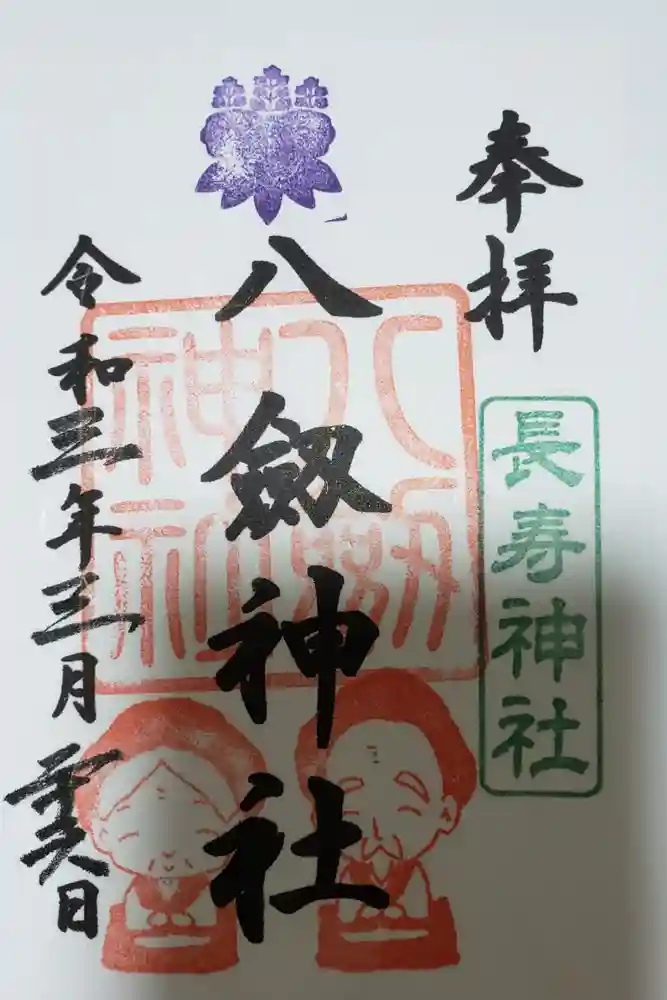 奉拝
長寿神社
八劔神社
八劔
神社
令和三年三月 日